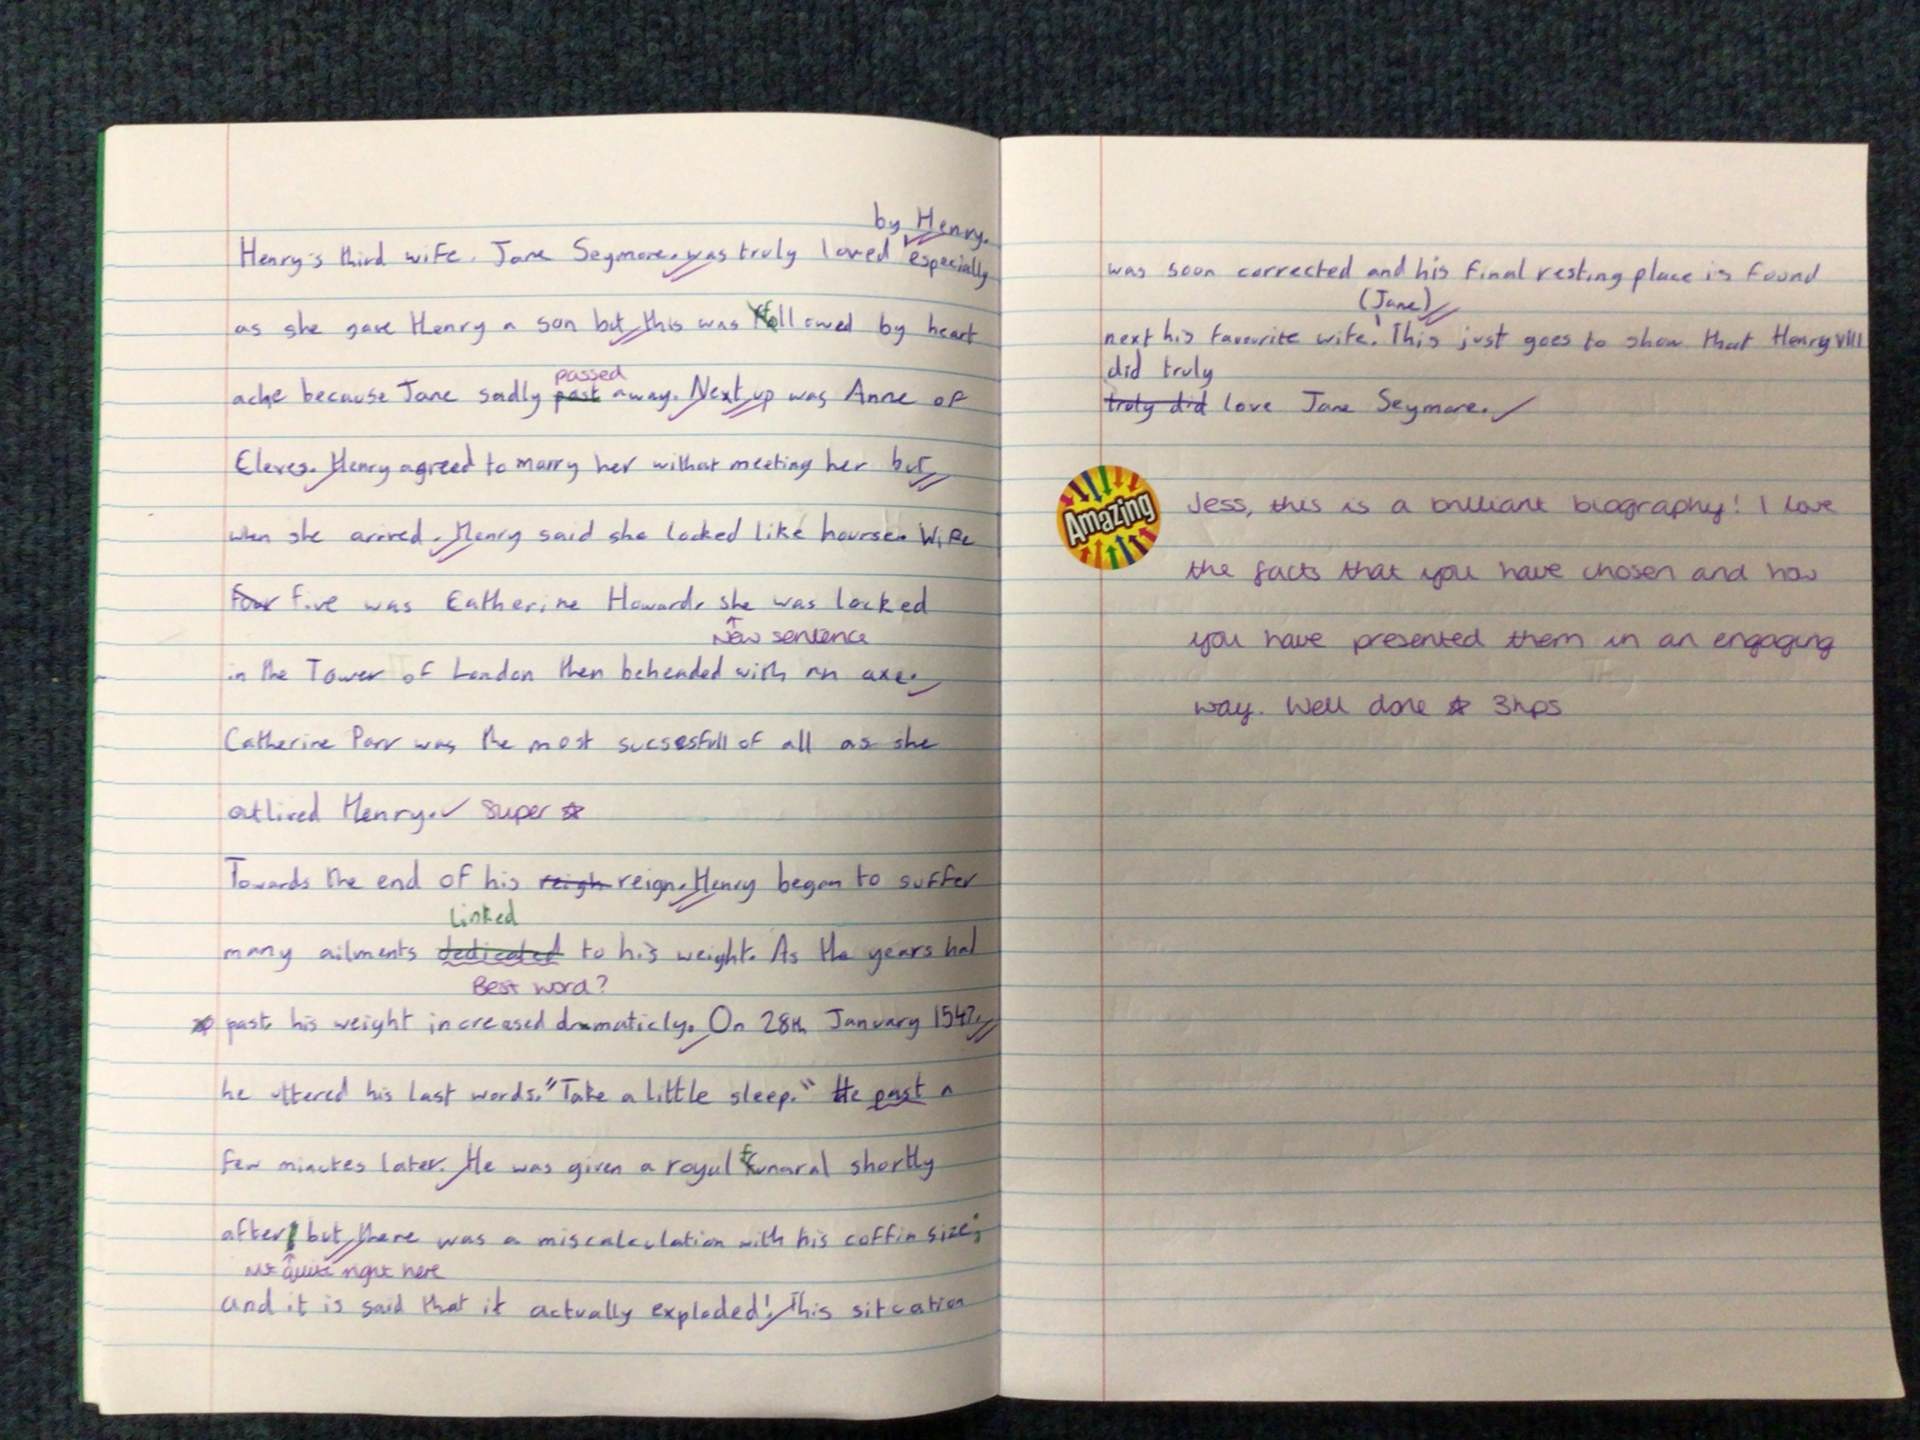 by Henry.
Henry's third wife, Jane Seymore, was truly loved especially
as she gave Henry a son but, this was followed by heart
passed
ache because Jane sadly past away. Next, up was Anne of
Cleves. Henry agreed to marry her without meeting her but,
when she arrived, Henry said she looked like hourse. Wife
four five was Catherine Howard, she was locked
New sentence
in the Tower of London then beheaded with an axe.
Catherine Parr was the most sucsesfull of all as she
outlived Henry. Super
Towards the end of his reigh reign, Henry began to suffer
Linked
many ailments dedicated to his weight. As the years had
Best word?
past, his weight increased dramaticly. On 28th January 1547,
he uttered his last words, "Take a little sleep." He past a
few minutes later. He was given a royal funaral shortly
after, but, there was a miscalculation with his coffin size;
Not quite right here
and it is said that it actually exploded! This sitcation
was soon corrected and his final resting place is found
(Jane)
next his favourite wife. This just goes to show that Henry VIII
did truly
truly did love Jane Seymore.
Amazing
Jess, this is a brilliant biography! I love
the facts that you have chosen and how
you have presented them in an engaging
way. Well done ☆ 3hps